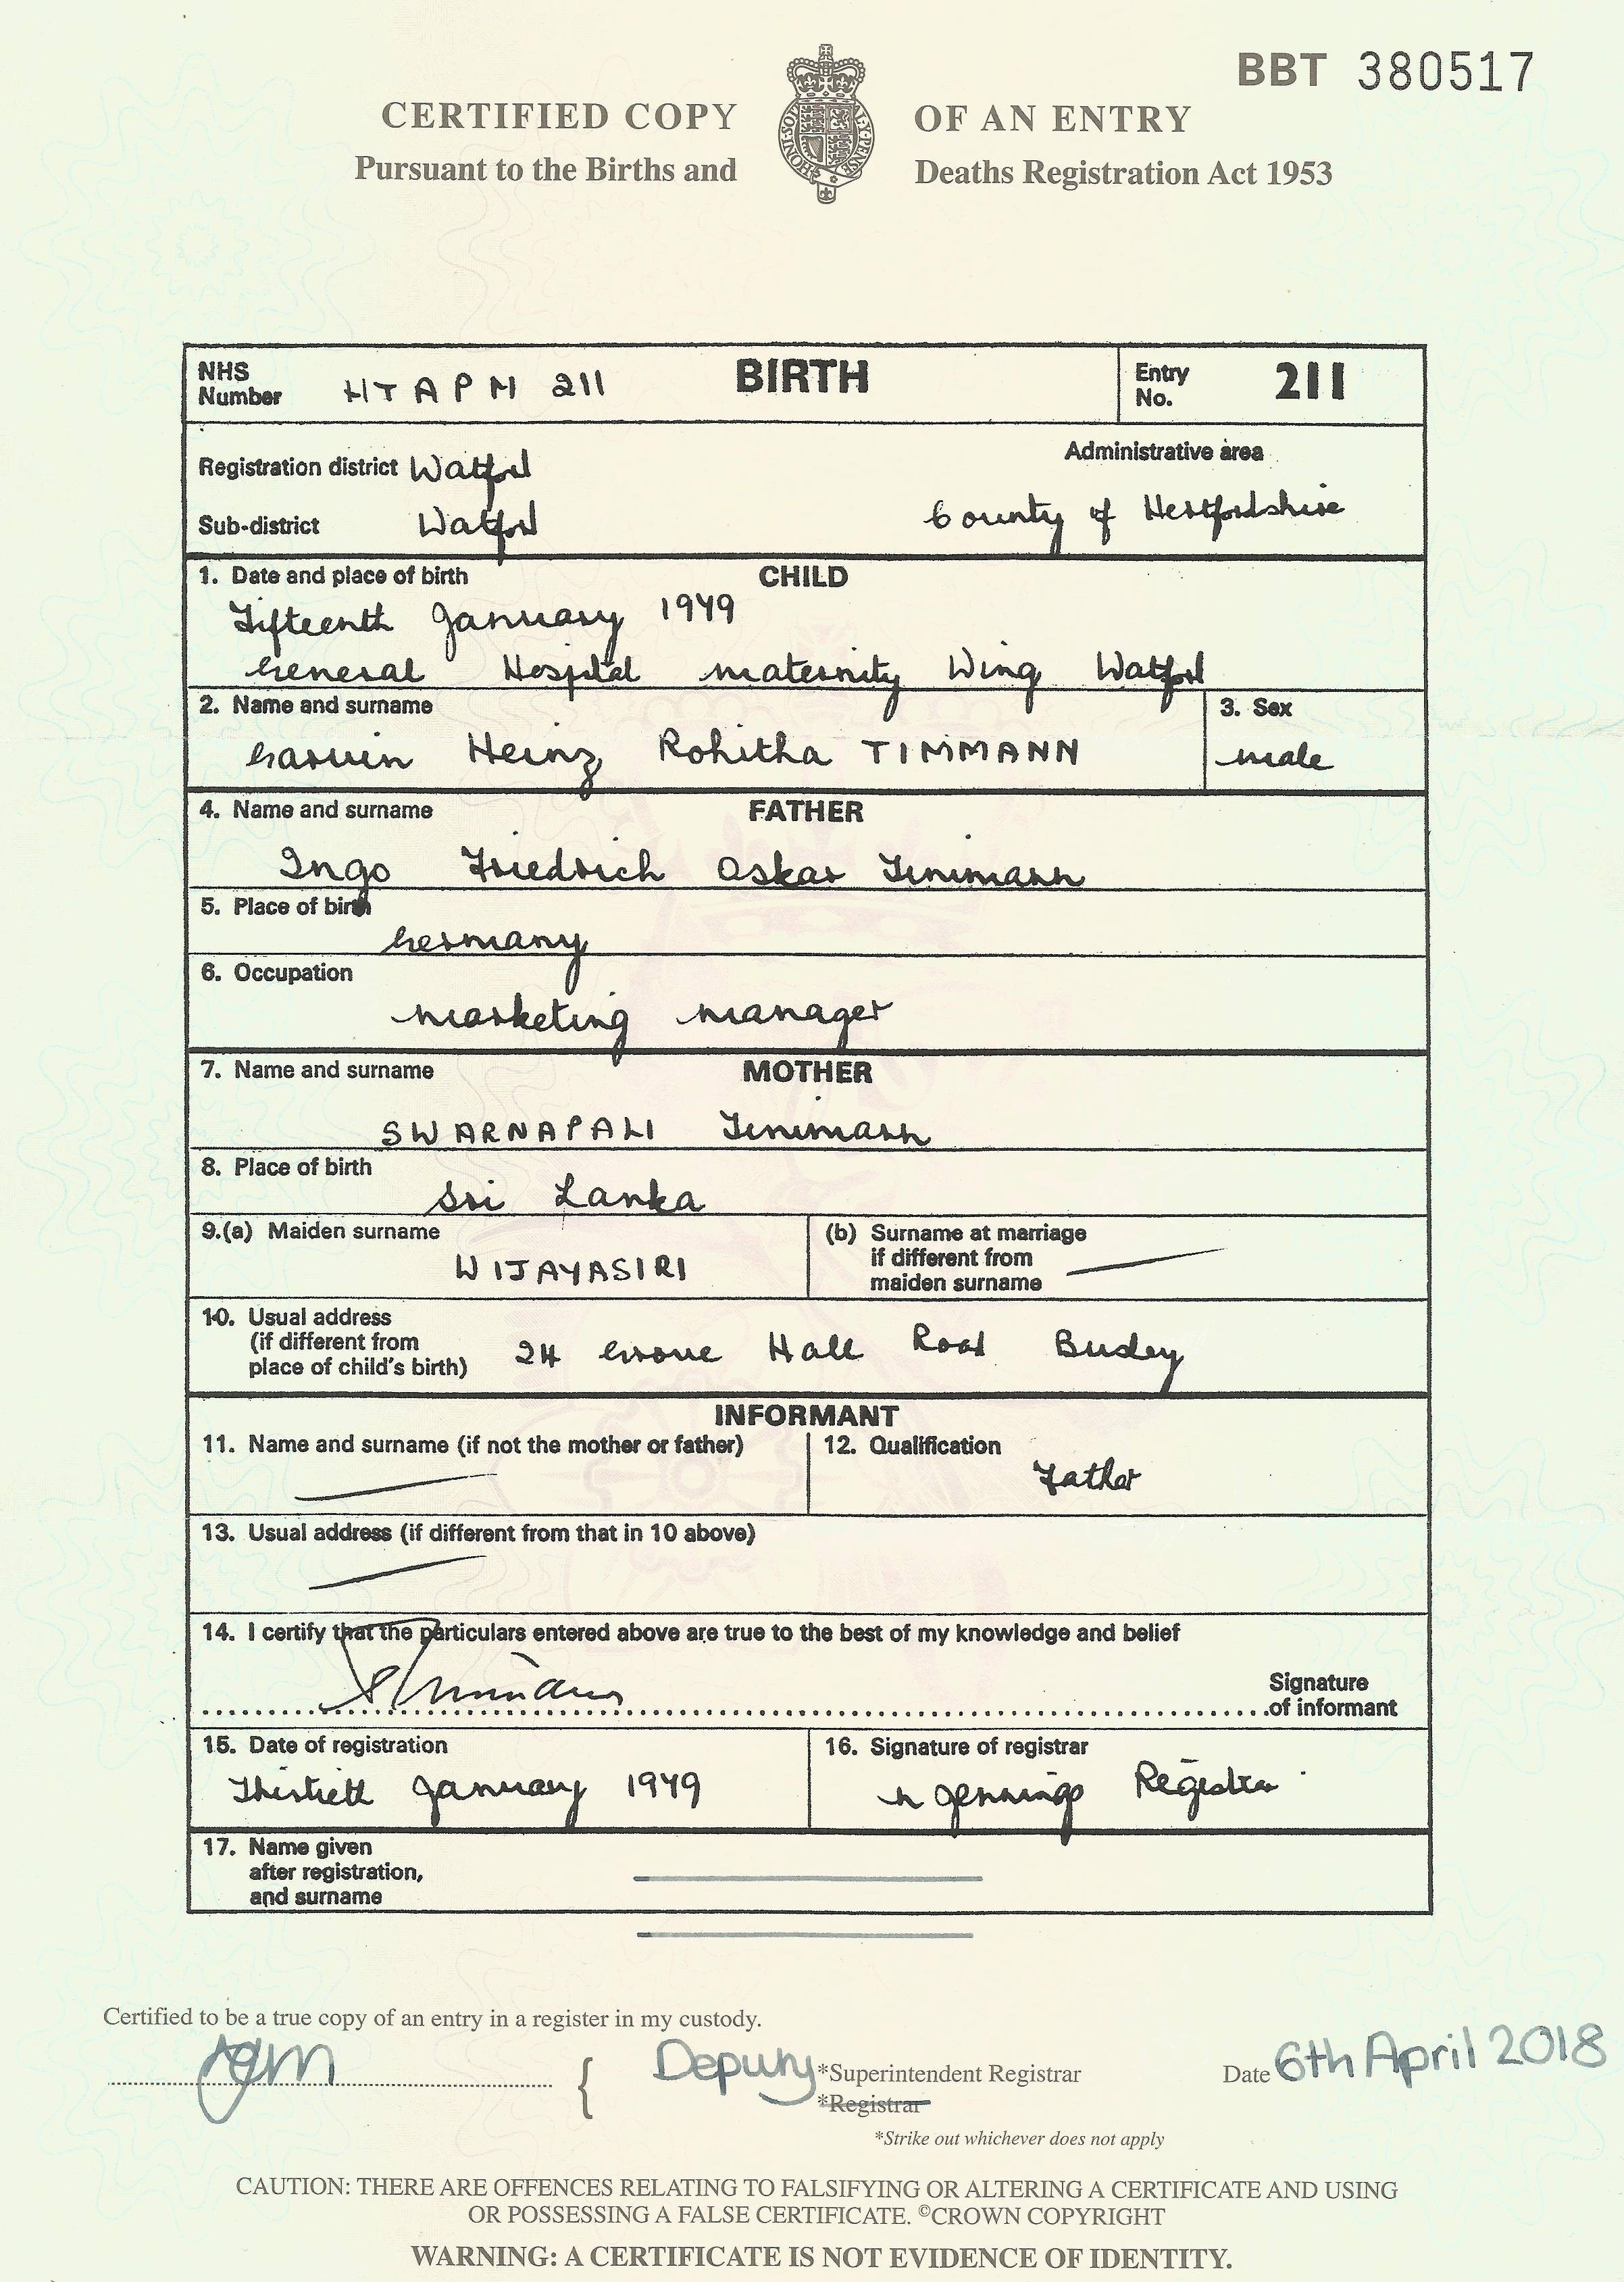 BBT 380517
CERTIFIED COPY OF AN ENTRY
Pursuant to the Births and Deaths Registration Act 1953
NHS Number HTAPM 211 BIRTH Entry No. 211
Registration district Watford Administrative area
Sub-district Watford County of Hertfordshire
1. Date and place of birth CHILD
Fifteenth January 1979
General Hospital Maternity Wing Watford
2. Name and surname 3. Sex
Heinz Rohitha TIMMANN male
4. Name and surname FATHER
Ingo Friedrich Oskar Timmann
5. Place of birth
Germany
6. Occupation
Marketing manager
7. Name and surname MOTHER
SWARNAPALI Timmann
8. Place of birth
Sri Lanka
9.(a) Maiden surname (b) Surname at marriage
if different from
maiden surname
WIJAYASIRI
10. Usual address
(if different from
place of child's birth) 24 Hall Road Bushey
INFORMANT
11. Name and surname (if not the mother or father) 12. Qualification
Father
13. Usual address (if different from that in 10 above)
14. I certify that the particulars entered above are true to the best of my knowledge and belief
Signature
of informant
15. Date of registration 16. Signature of registrar
Thirtieth January 1979 Jennings Registrar
17. Name given
after registration,
and surname
Certified to be a true copy of an entry in a register in my custody.
Deputy *Superintendent Registrar Date 6th April 2018
*Registrar
*Strike out whichever does not apply
CAUTION: THERE ARE OFFENCES RELATING TO FALSIFYING OR ALTERING A CERTIFICATE AND USING
OR POSSESSING A FALSE CERTIFICATE. ©CROWN COPYRIGHT
WARNING: A CERTIFICATE IS NOT EVIDENCE OF IDENTITY.